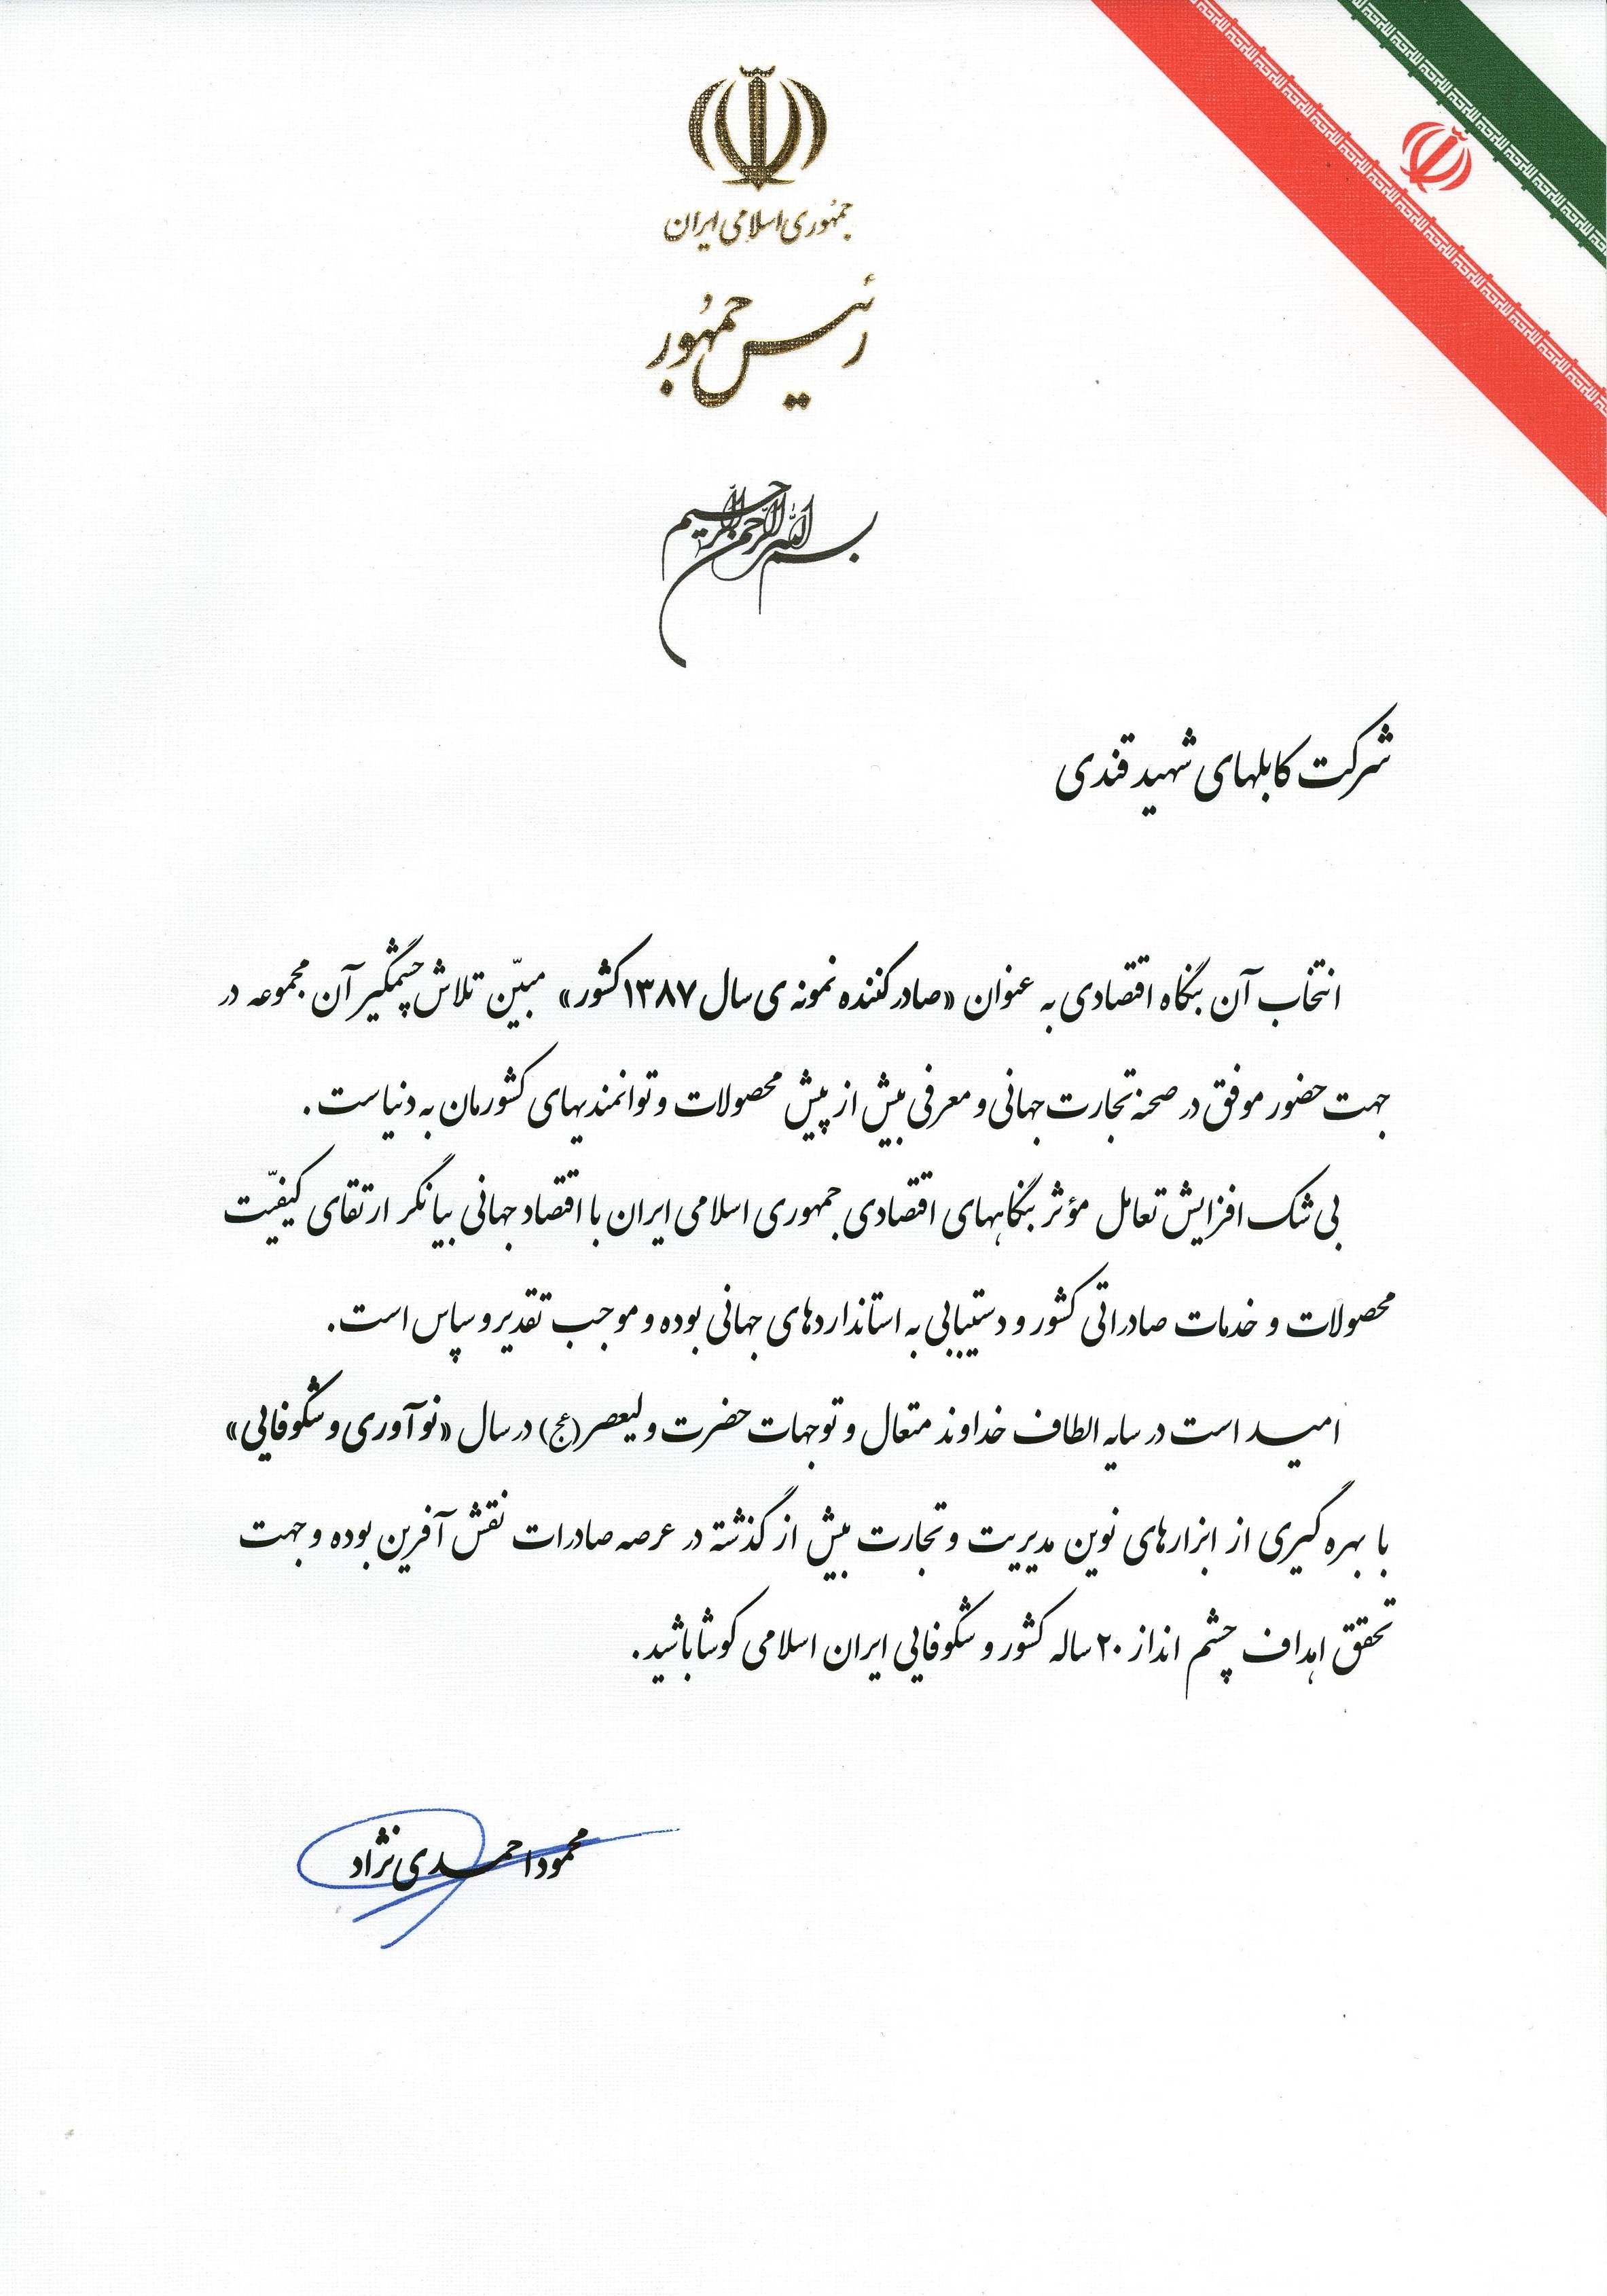 جمهوری اسلامی ایران
رئیس جمهور
بسم الله الرحمن الرحیم
شرکت کابلهای شهید قندی
انتخاب آن بنگاه اقتصادی به عنوان «صادر کننده نمونه ی سال ۱۳۸۷ کشور» مبیّن تلاش چشمگیر آن مجموعه در
جهت حضور موفق در صحنه تجارت جهانی و معرفی بیش از پیش محصولات و توانمندیهای کشورمان به دنیاست .
بی شک افزایش تعامل مؤثر بنگاههای اقتصادی جمهوری اسلامی ایران با اقتصاد جهانی بیانگر ارتقای کیفیّت
محصولات و خدمات صادراتی کشور و دستیابی به استانداردهای جهانی بوده و موجب تقدیر و سپاس است.
امید است در سایه الطاف خداوند متعال و توجهات حضرت ولیعصر(عج) در سال «نوآوری و شکوفایی»
با بهره گیری از ابزارهای نوین مدیریت و تجارت بیش از گذشته در عرصه صادرات نقش آفرین بوده و جهت
تحقق اهداف چشم انداز ۲۰ ساله کشور و شکوفایی ایران اسلامی کوشا باشید.
محمود احمدی نژاد